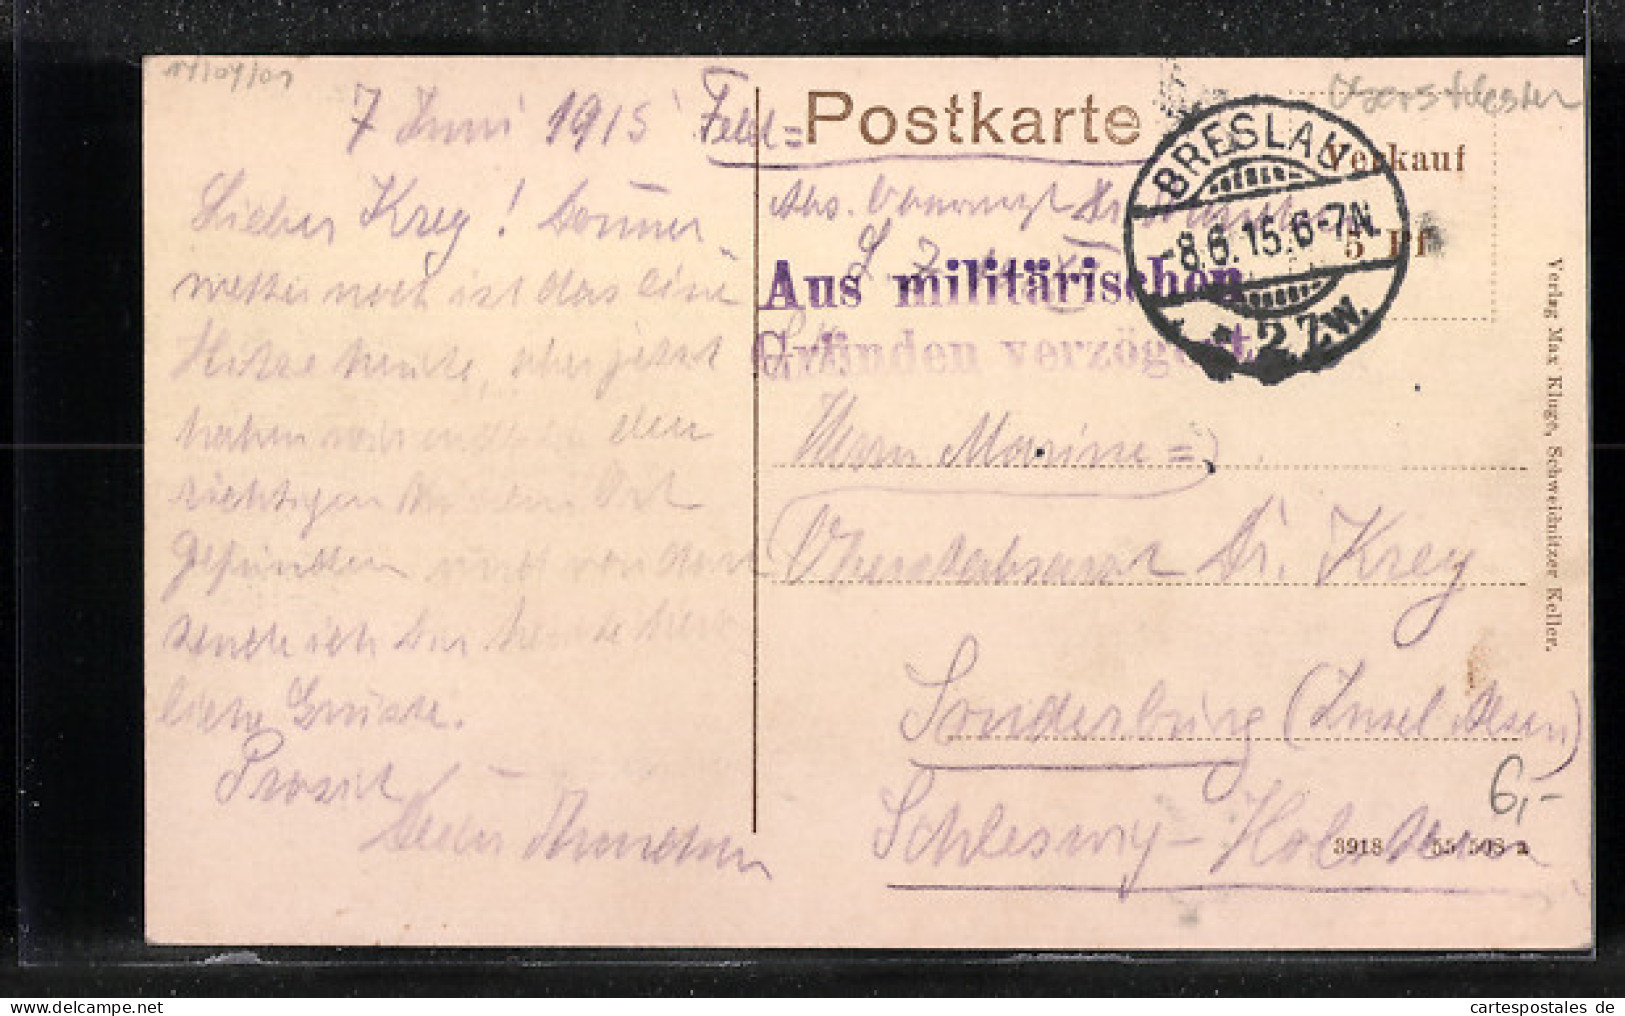 7 Juni 1915
Feld=
Postkarte
BRESLAU
-8.6.15.6-7N.
* 2 Zw.
Verkauf
5 Pf
Lieber Krey! Donner-
wetter noch ist das eine
Hitze heute, aber jetzt
haben wir endlich den
richtigen kühlen Ort
gefunden und von dort
sende ich Dir heute
liebe Grüsse.
Prosit
Abs.
Aus militärischen
Gründen verzögert
Herrn Marine=
Oberstabsarzt Dr. Krey
Sonderburg (Insel Alsen)
Schleswig-Holstein
6,-
3918 55/508 a
Verlag Max Kluge, Schweidnitzer Keller.
cartespostales.de